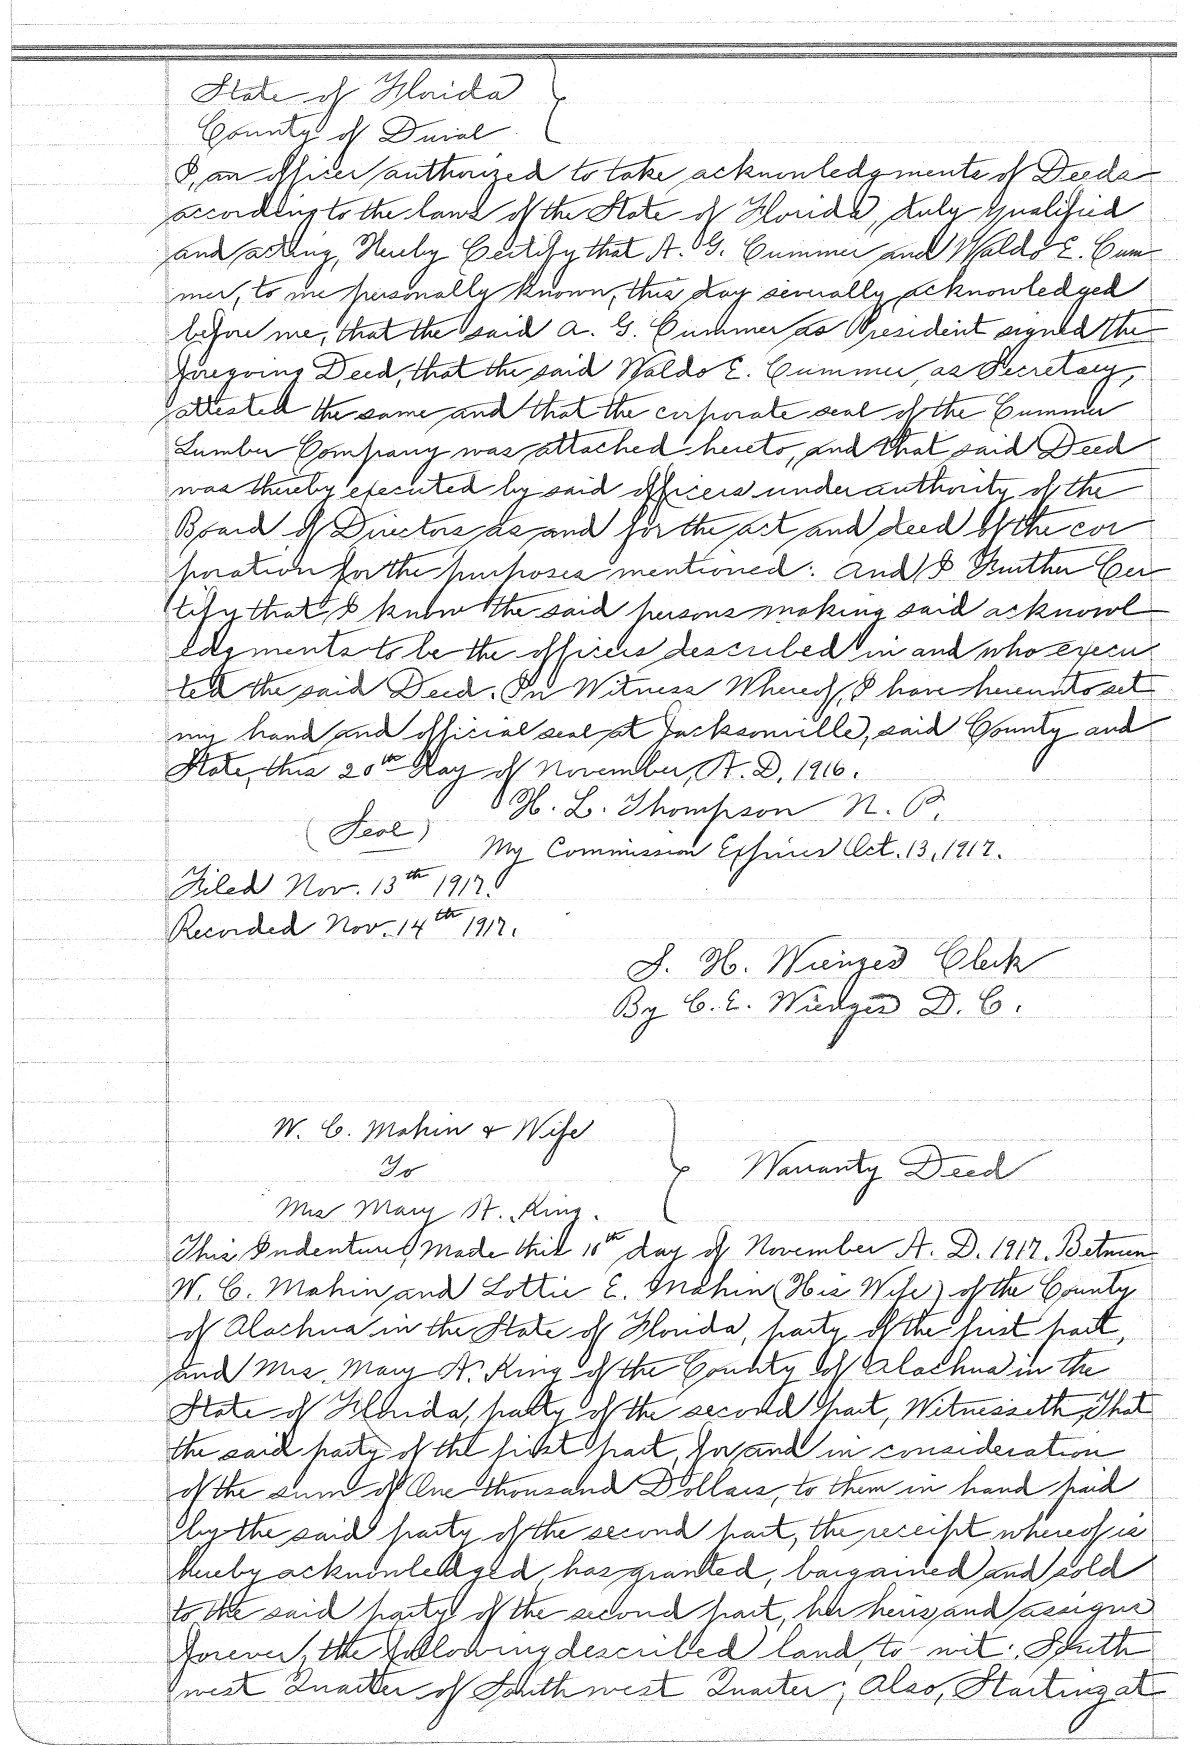 State of Florida
County of Duval
I, an officer authorized to take acknowledgments of Deeds
according to the laws of the State of Florida, duly qualified
and acting, Hereby Certify that A. G. Cummer and Waldo E. Cum
mer, to me personally known, this day severally acknowledged
before me, that the said A. G. Cummer as President signed the
foregoing Deed, that the said Waldo E. Cummer, as Secretary,
attested the same and that the corporate seal of the Cummer
Lumber Company was attached hereto, and that said Deed
was thereby executed by said officers under authority of the
Board of Directors as and for the act and deed of the cor
poration for the purposes mentioned: And I Further Cer
tify that I know the said persons making said acknowl
edgments to be the officers described in and who execu
ted the said Deed. In Witness Whereof, I have hereunto set
my hand and official seal at Jacksonville, said County and
State, this 20th day of November, A. D. 1916.
H. L. Thompson N. P.
(Seal)
My Commission Expires Oct. 13, 1917.
Filed Nov. 13th 1917.
Recorded Nov. 14th 1917.
S. H. Wienges Clerk
By C. E. Wienges D. C.
W. C. Mahin & Wife
To
Mrs Mary A. King.
Warranty Deed
This Indenture, Made this 10th day of November A. D. 1917. Between
W. C. Mahin and Lottie E. Mahin (His Wife) of the County
of Alachua in the State of Florida, party of the first part,
and Mrs. Mary A. King of the County of Alachua in the
State of Florida, party of the second part, Witnesseth, That
the said party of the first part, for and in consideration
of the sum of One thousand Dollars, to them in hand paid
by the said party of the second part, the receipt whereof is
hereby acknowledged, has granted, bargained and sold
to the said party of the second part, her heirs and assigns
forever, the following described land, to-wit: South
west Quarter of Southwest Quarter; Also, Starting at